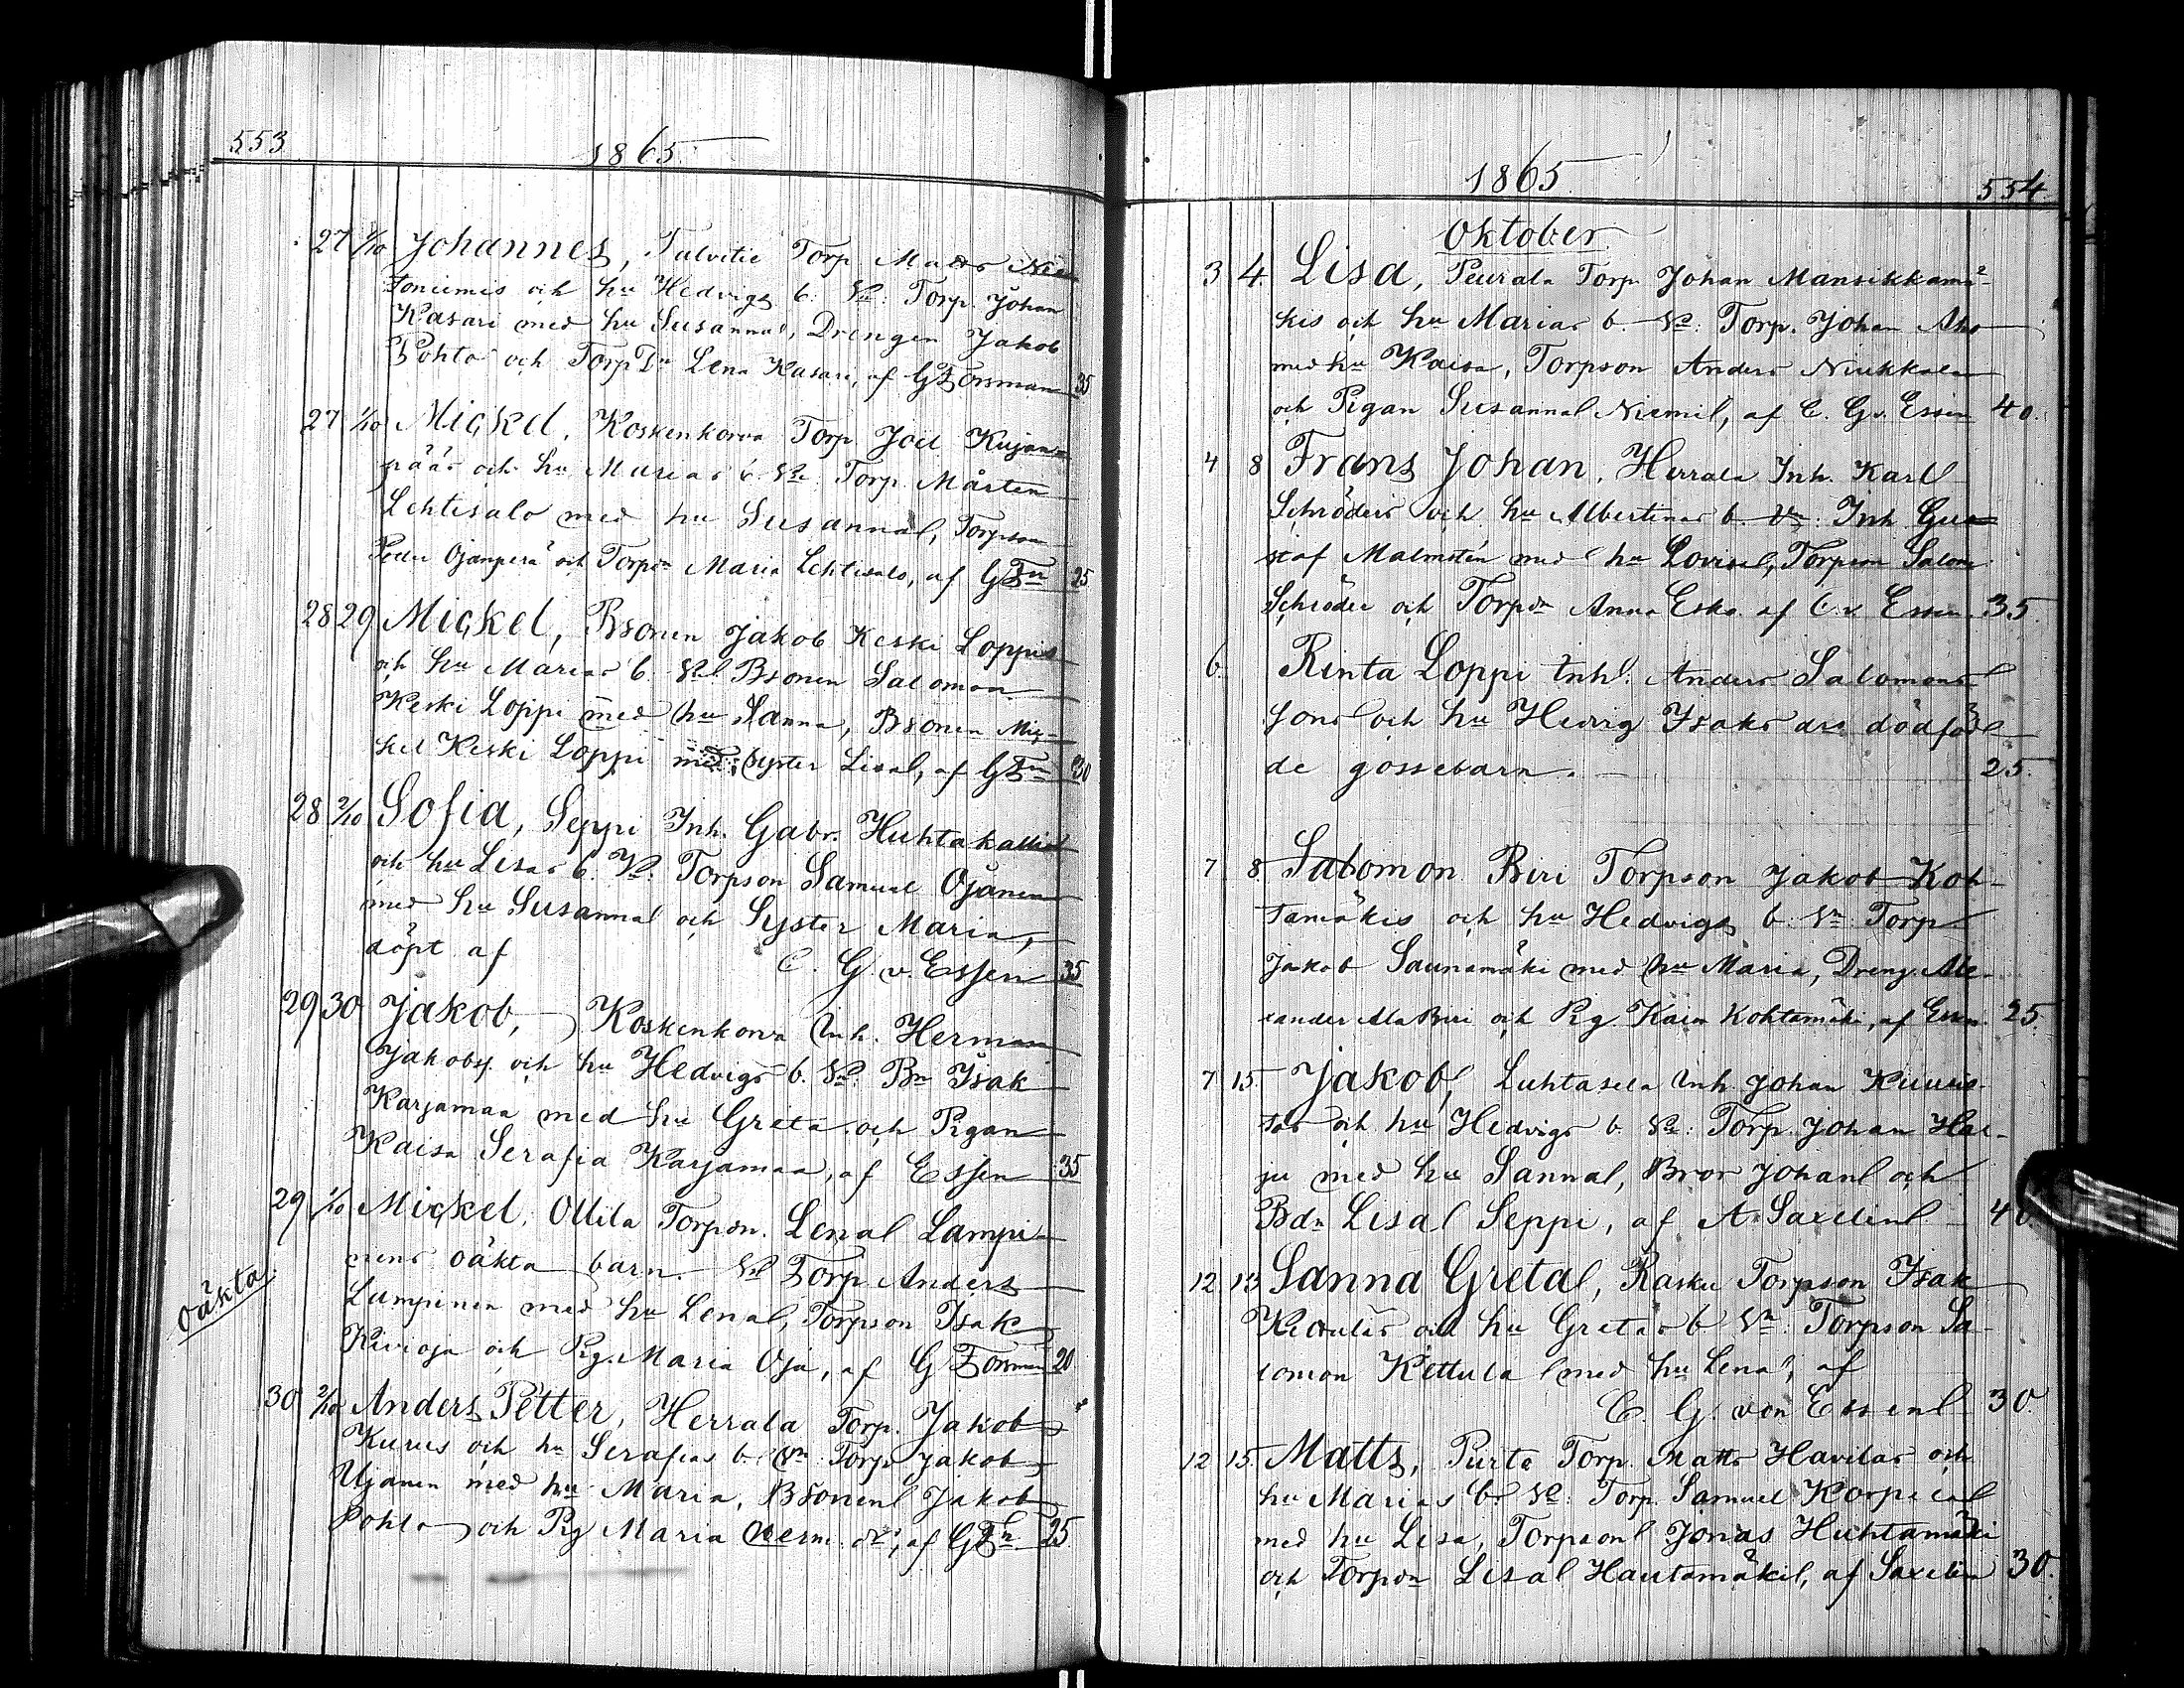 553
1865
27 1/10 Johannes, Talvitie Torp. Matts Nie-
toniemis och hu Hedvigs b. Vn: Torp. Johan
Kasari med hu Susanna, Drengen Jakob
Pohto och Torpdn Lena Kasari, af G Forsman 35
27 1/10 Mickel, Koskenkorva Torp. Joel Kujan=
pääs och hu Marias b. Vn: Torp. Mårten
Lehtisalo med hu Susanna, Torpson
Ojanperä och Torpdn Maria Lehtisalo, af G Fn 25
28 29 Mickel, Bsonen Jakob Keski Loppis
och hu Marias b. Vn Bsonen Salomon
Keski Loppi med hu Sanna, Bsonen Mic-
kel Keski Loppi med syster Lisa, af G Fn 30
28 2/10 Sofia, Seppi Inh. Gabr. Huhtakallios
och hu Lisas b. Vn: Torpson Samuel Ojanen
med hu Susanna och Syster Maria,
döpt af C. G. v. Essen 35
29 30 Jakob, Koskenkorva Inh. Herman
Jakobss. och hu Hedvigs b. Vn: Bn Isak
Karjamaa med hu Greta och Pigan
Kaisa Serafia Karjamaa, af Essen 35
29 1/10 Mickel, Ollila Torpdn. Lena Lampi-
nens oäkta barn. Vn Torp. Anders
Lampinen med hu Lena, Torpson Isak
Kivioja och Pig. Maria Oja, af G Forsman 20
oäkta
30 2/10 Anders Petter, Herrala Torp. Jakob
Kurus och hu Serafias b. Vn Torp. Jakob
Ujanen med hu Maria, Bsonen Jakob
Pohto och Pig Maria Herm. dr, af G Fn 25
1865
554
Oktober
3 4. Lisa, Peurala Torp. Johan Mansikkamä-
kis och hu Marias b. Vn: Torp. Johan Aho
med hu Kaisa, Torpson Anders Niukkala
och Pigan Susanna Niemi, af C. G v. Essen 40.
4 8 Frans Johan, Herrala Inh. Karl
Schröders och hu Albertinas b. Vn: Inh. Gus=
staf Malmsten med hu Lovisa, Torpson Salom.
Schröder och Torpdn Anna Esko af C. v. Essen. 35.
6. Rinta Loppi Inh. Anders Salomons
sons och hu Hedvig Isaks drs dödföd
de gossebarn. 25.
7 8. Salomon Biri Torpson Jakob Koh-
tamäkis och hu Hedvigs b. Vn: Torp.
Jakob Saunamäki med hu Maria, Dreng. Ale-
xander Ala Biri och Pig. Kaisa Kohtamäki, af Essen. 25.
7 15. Jakob, Luhtasela Inh. Johan Kuuris-
tos och hu Hedvigs b. Vn: Torp. Johan Har-
ju med hu Sanna, Bror Johan och
Bdn Lisa Seppi, af A. Saxelin 40.
12 13 Sanna Greta, Rasku Torpson Isak
Kettulas och hu Gretas b. Vn: Torpson Sa-
lomon Kettula med hu Lena, af
C. G. von Essen 30.
12 15. Matts, Purta Torp. Matts Havilas och
hu Marias b. Vn: Torp. Samuel Korpi
med hu Lisa, Torpson Jonas Huhtamäki
och Torpdn Lisa Hautamäki, af Saxelin 30.